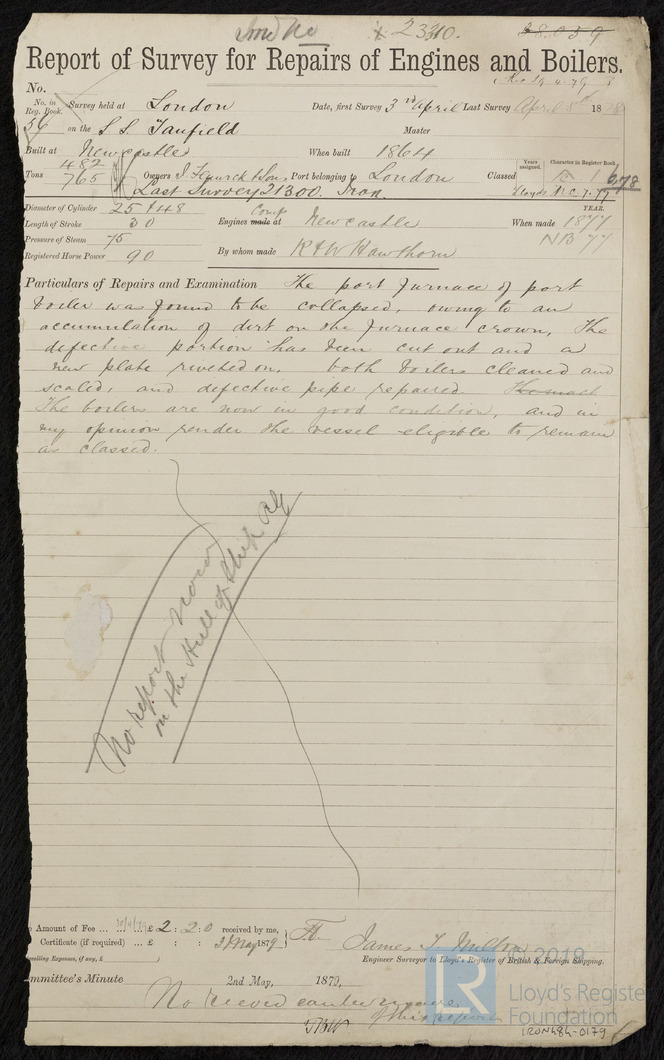 2330. 28059
Report of Survey for Repairs of Engines and Boilers.
No.
No. in Reg. Book. Survey held at London Date, first Survey 3rd April Last Survey April 18
56 on the S.S. Tanfield Master
Built at Newcastle When built 1864
Tons 482 765 Owners J Fenwick & Son Port belonging to London Classed
Years assigned. Character in Register Book
Last Survey 21300. Iron. Lloyds M.C. 7.77 678
YEAR.
Diameter of Cylinder 25 & 48
Length of Stroke 30 Engines made at Comp Newcastle When made 1877
Pressure of Steam 75 NB 77
Registered Horse Power 90 By whom made R & W Hawthorn
Particulars of Repairs and Examination The port furnace of port
boiler was found to be collapsed, owing to an
accumulation of dirt on the furnace crown, The
defective portion has been cut out and a
new plate riveted on. both boilers cleaned and
scaled, and defective pipe repaired The mach
The boilers are now in good condition, and in
my opinion render the vessel eligible to remain
as classed.
No report now
on the Hull of Ship
Amount of Fee ... £ 2 : 2 : 0 received by me,
Certificate (if required) ... £ : : 2 May 1879
Travelling Expenses, if any, £
James T Milton
Engineer Surveyor to Lloyd's Register of British & Foreign Shipping.
Committee's Minute 2nd May, 1879.
No
of this report
© 2019
LR
Lloyd's Register
Foundation
IRON484-0179